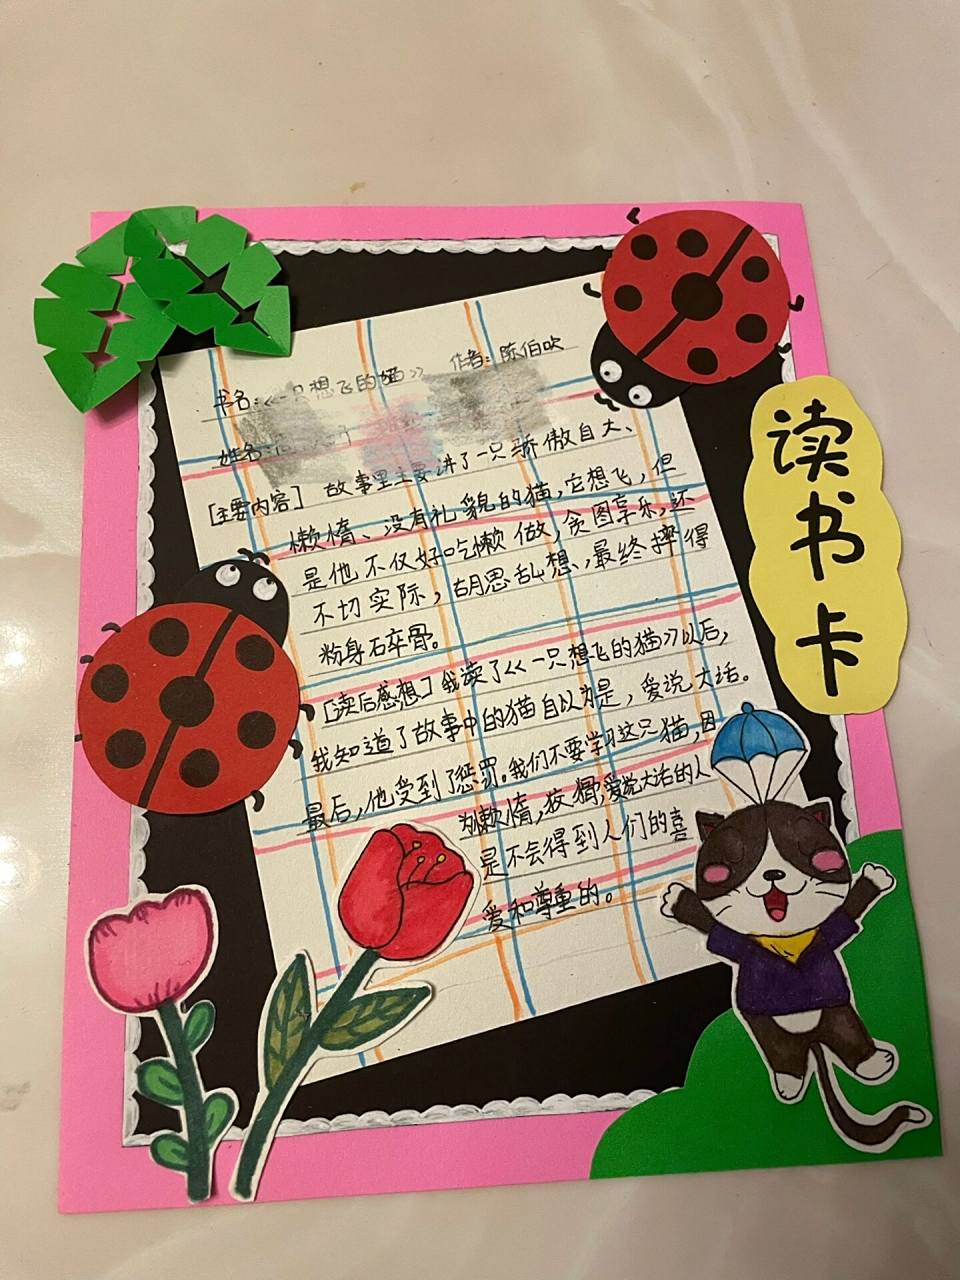 书名:《一只想飞的猫》 作者:陈伯吹
姓名:
[主要内容] 故事里主要讲了一只骄傲自大、
懒惰、没有礼貌的猫,它想飞,但
是他不仅好吃懒做,贪图享乐,还
不切实际,胡思乱想,最终摔得
粉身碎骨。
[读后感想] 我读了《一只想飞的猫》以后,
我知道了故事中的猫自以为是,爱说大话。
最后,他受到了惩罚。我们不要学习这只猫,因
为懒惰,狡猾,爱说大话的人
是不会得到人们的喜
爱和尊重的。
读书卡